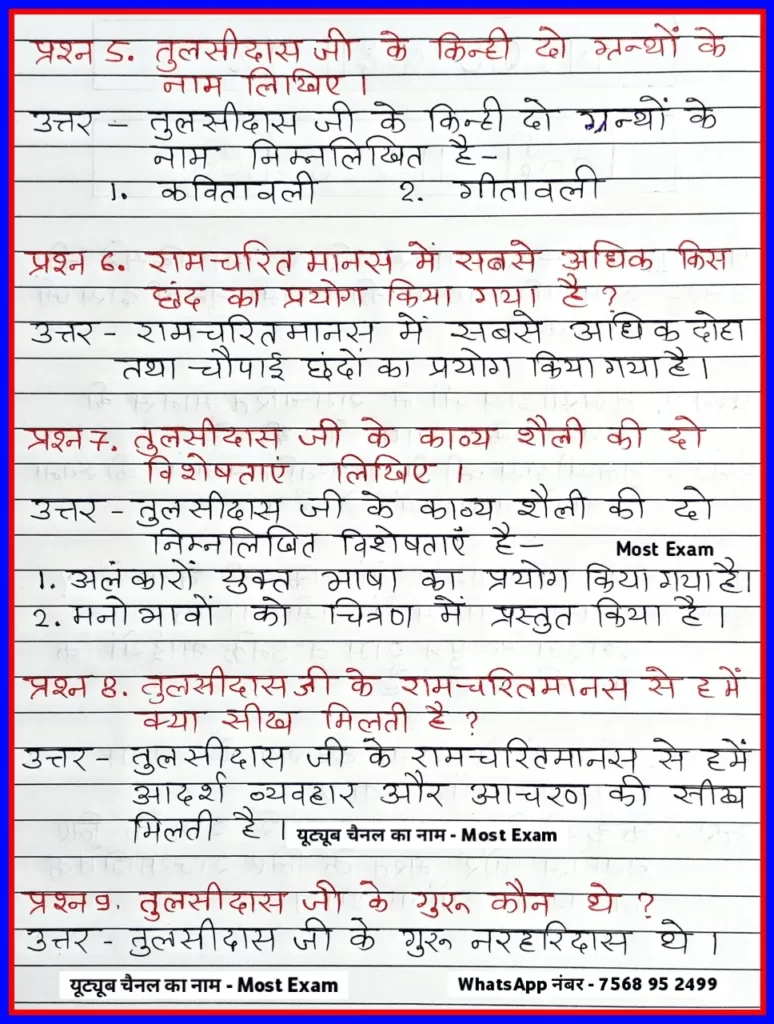 प्रश्न 5. तुलसीदास जी के किन्ही दो ग्रन्थों के
नाम लिखिए ।
उत्तर – तुलसीदास जी के किन्ही दो ग्रन्थों के
नाम निम्नलिखित है–
1. कवितावली 2. गीतावली
प्रश्न 6. रामचरितमानस में सबसे अधिक किस
छंद का प्रयोग किया गया है ?
उत्तर - रामचरितमानस में सबसे अधिक दोहा
तथा चौपाई छंदों का प्रयोग किया गया है ।
प्रश्न 7. तुलसीदास जी के काव्य शैली की दो
विशेषताएं लिखिए ।
उत्तर - तुलसीदास जी के काव्य शैली की दो
निम्नलिखित विशेषताएँ है–
Most Exam
1. अलंकारों युक्त भाषा का प्रयोग किया गया है।
2. मनोभावों को चित्रण में प्रस्तुत किया है ।
प्रश्न 8. तुलसीदास जी के रामचरितमानस से हमें
क्या सीख मिलती है ?
उत्तर - तुलसीदास जी के रामचरितमानस से हमें
आदर्श व्यवहार और आचरण की सीख
मिलती है । यूट्यूब चैनल का नाम - Most Exam
प्रश्न 9. तुलसीदास जी के गुरू कौन थे ?
उत्तर - तुलसीदास जी के गुरू नरहरिदास थे ।
यूट्यूब चैनल का नाम - Most Exam WhatsApp नंबर - 7568 95 2499